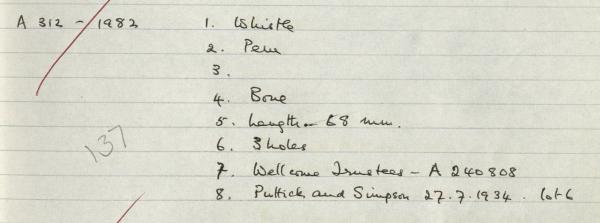 A 312 - 1982
1. Whistle
2. Peru
3.
4. Bone
5. Length - 68 mm.
6. 3 holes
7. Wellcome Trustees - A 240808
8. Puttick and Simpson 27.7.1934. lot 6
137